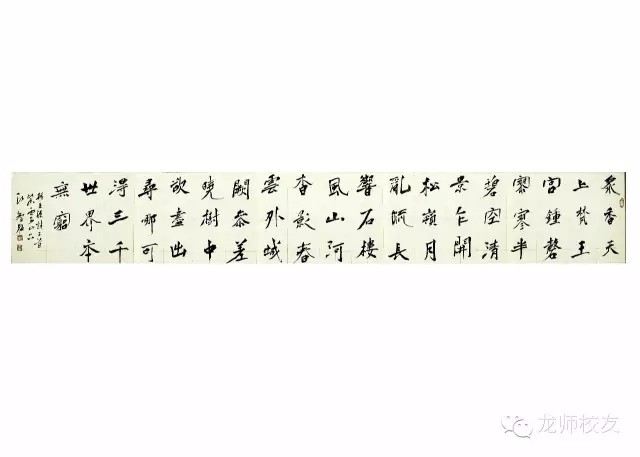 眾香天
上梵王
宮鐘磬
寥寥半
碧空清
景乍開
松嶺月
亂流長
響石樓
風山河
杳影春
雲外城
闕參差
曉樹中
欲盡出
尋哪可
得三千
世界本
無窮
龙师校友